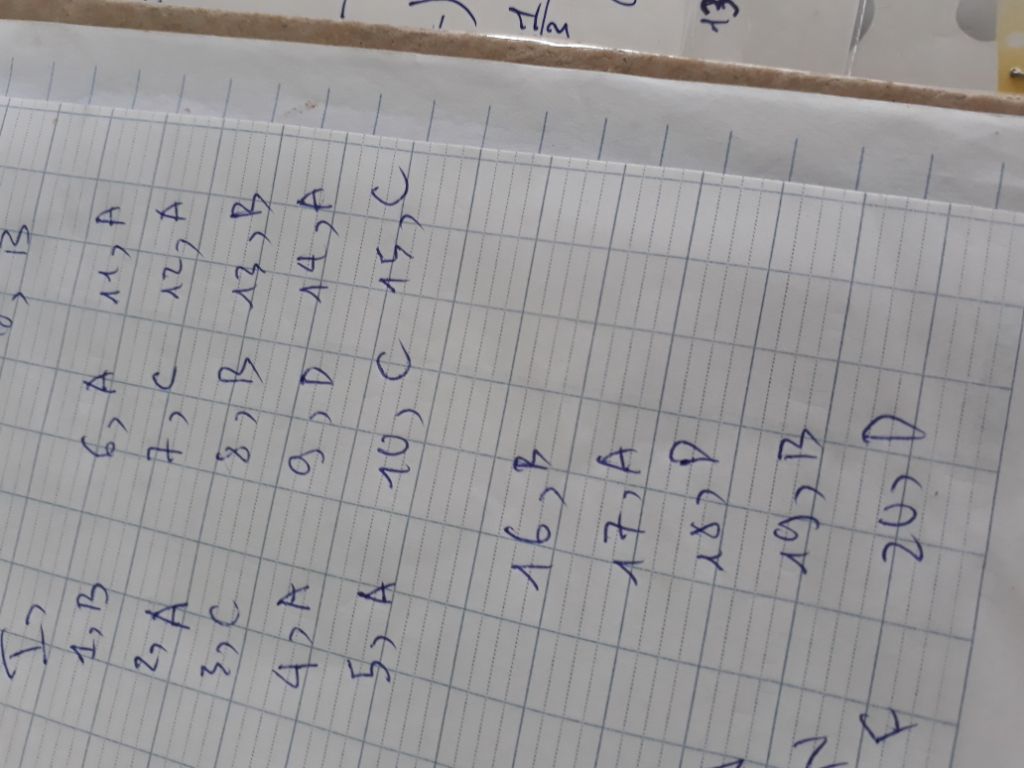 I,
1, B 6, A 11, A
2, A 7, C 12, A
3, C 8, B 13, B
4, A 9, D 14, A
5, A 10, C 15, C
16, B
17, A
18, D
19, B
20, D